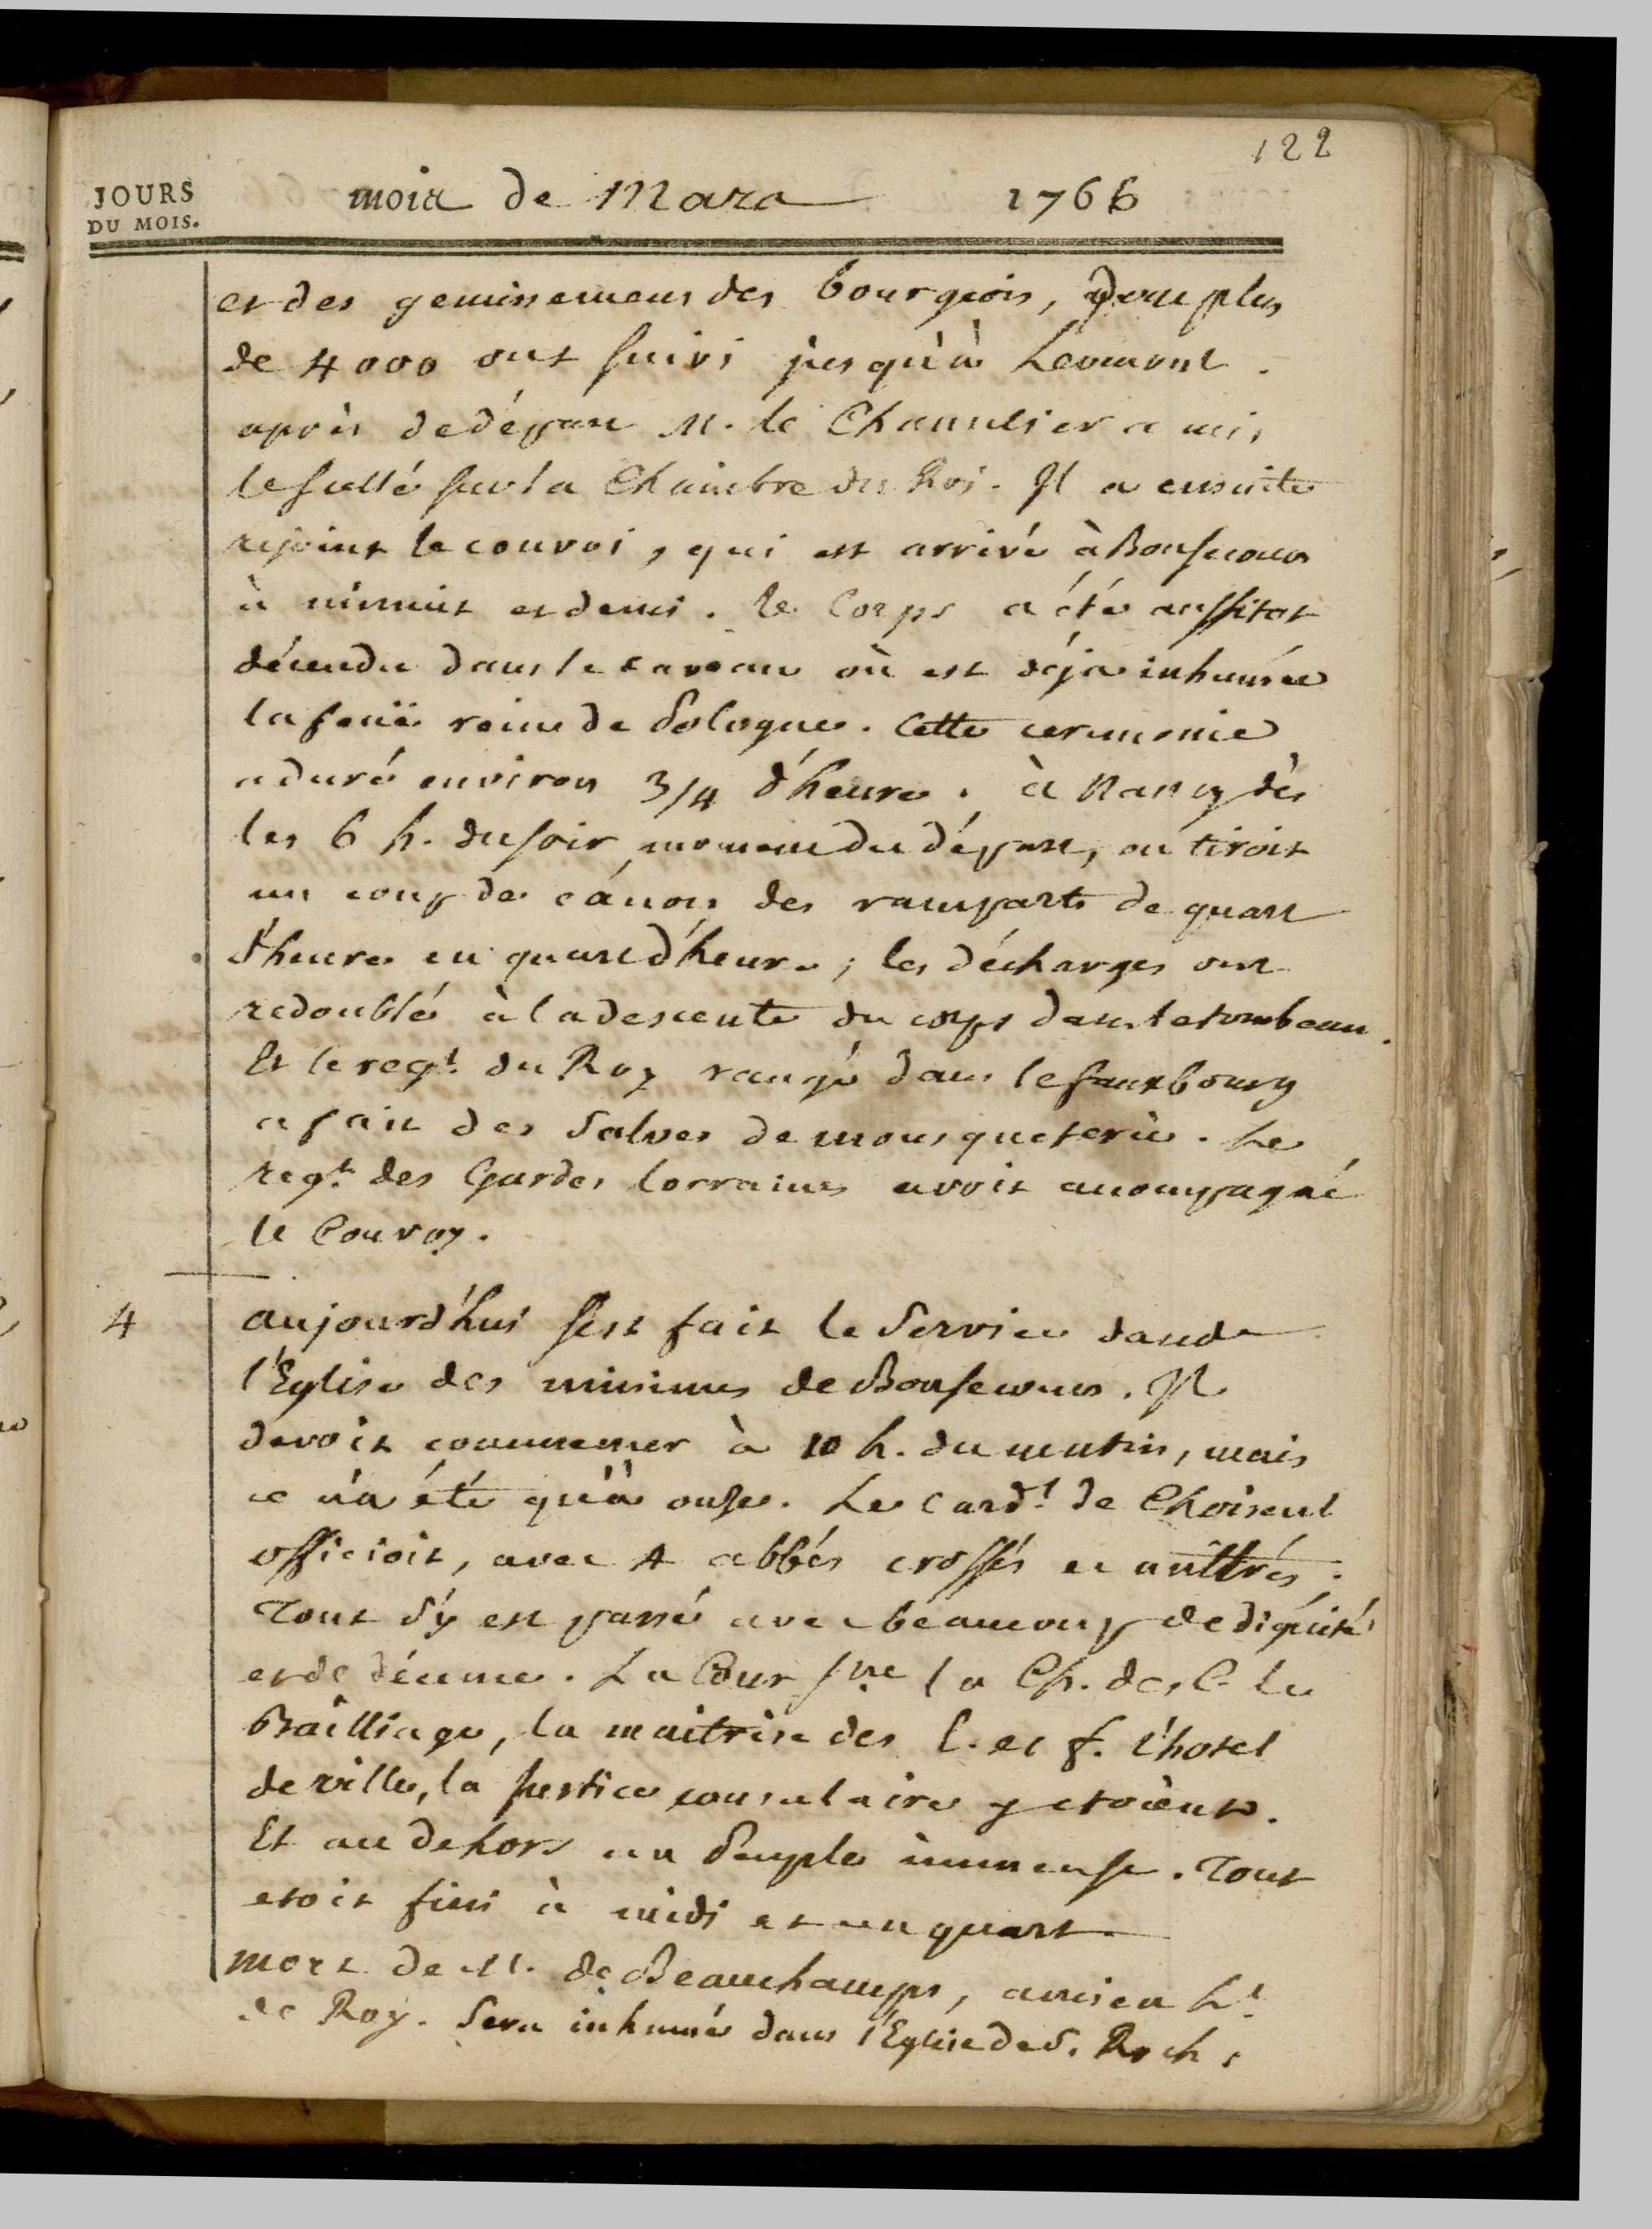 122
JOURS
DU MOIS.
mois de Mars 1766
et des gemissemens des bourgeois, dont plus
de 4000 ont suivi jusqu'à Leomont.
après de départ M. le Chancelier a mis
le scellé sur la Chambre du Roi. Il a ensuite
rejoint le convoi, qui est arrivé à Bonsecours
à minuit et demi. Le Corps a été aussitot
décendu dans le caveau où est déja inhumée
la feuë reine de Pologne. Cette ceremonie
a duré environ 3/4 d'heure. à Nancy dès
les 6 h. du soir, moment du départ, on tiroit
un coup de canon des ramparts de quart
d'heure en quart d'heure ; les décharges ont
redoublé à la descente du corps dans le tombeau.
Et le regt. du Roy rangé dans le fauxbourg
a fait des Salves de mousqueterie. Le
regt. des Gardes Lorraines avoit accompagné
le Convoy.
4 aujourd'hui s'est fait le Service dans
l'Eglise des minimes de Bonsecours. Il
devoit commencer à 10 h. du matin, mais
ce n'a été qu'à onze. Le Cardl. de Choiseul
officioit, avec 4 abbés crossés et mittrés ;
Tout s'y est passé avec beaucoup de dignité
et de décence. La Cour sne la Ch. des C. le
Bailliage, la maitrise des E. et f. l'hotel
de ville, la justice consulaire y etoient.
Et au dehors un Peuple immense. Tout
etoit fini à midi et un quart.
mort de M. de Beauchamps, ancien Lt.
de Roy. Sera inhumé dans l'Eglise de S. Roch.